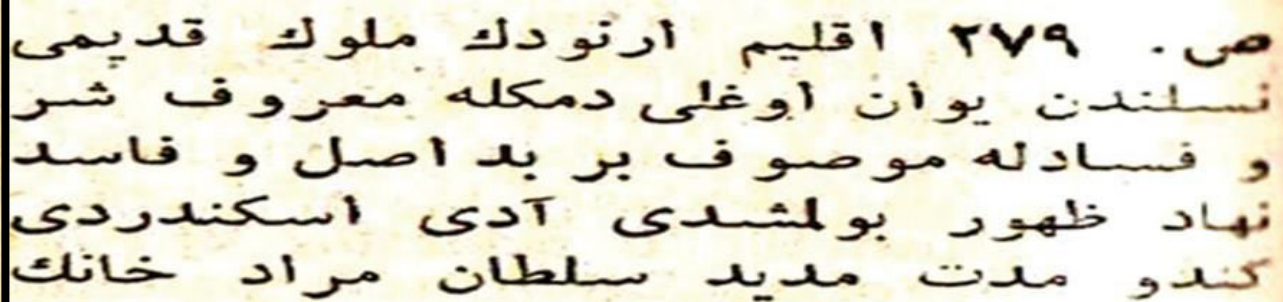 ص. ٢٧٩ اقليم ارنودك ملوك قديمى
نسلندن يوان اوغلى دمكله معروف شر
و فسادله موصوف بر بد اصل و فاسد
نهاد ظهور بولمشدى آدى اسكندردى
كندو مدت مديد سلطان مراد خانك